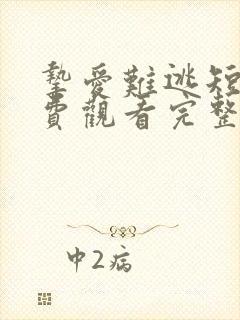 摯愛難逃短
費觀看完整
中2病